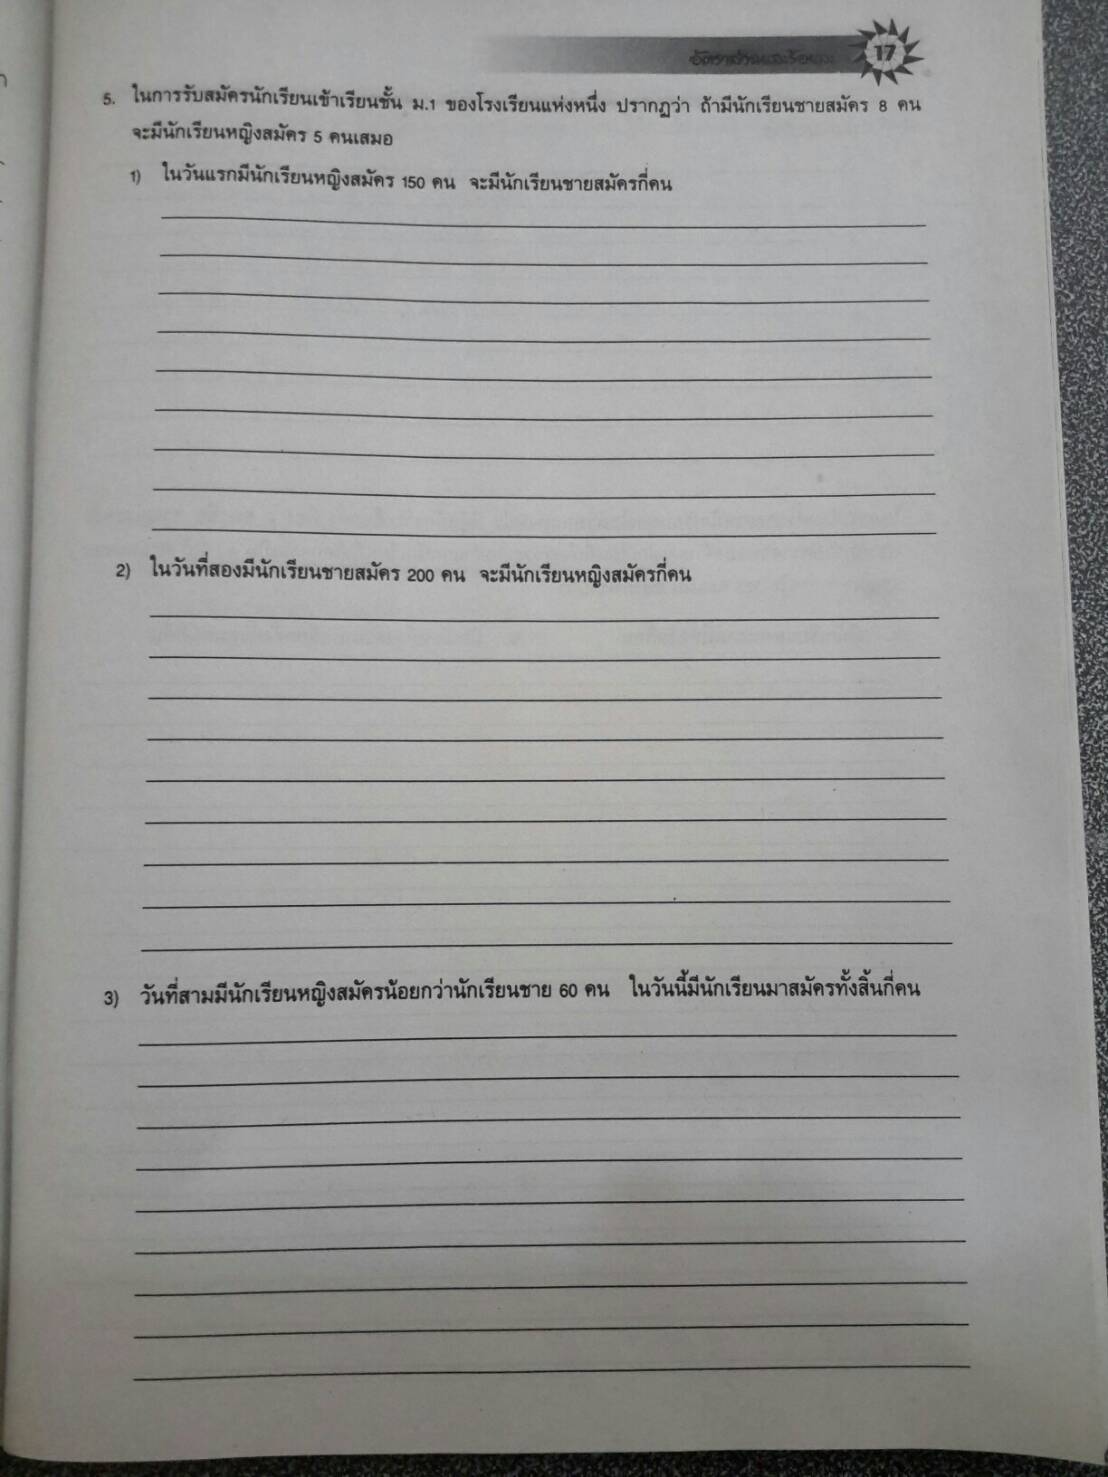 อัตราส่วนและร้อยละ 17
5. ในการรับสมัครนักเรียนเข้าเรียนชั้น ม.1 ของโรงเรียนแห่งหนึ่ง ปรากฏว่า ถ้ามีนักเรียนชายสมัคร 8 คน
จะมีนักเรียนหญิงสมัคร 5 คนเสมอ
1) ในวันแรกมีนักเรียนหญิงสมัคร 150 คน จะมีนักเรียนชายสมัครกี่คน
2) ในวันที่สองมีนักเรียนชายสมัคร 200 คน จะมีนักเรียนหญิงสมัครกี่คน
3) วันที่สามมีนักเรียนหญิงสมัครน้อยกว่านักเรียนชาย 60 คน ในวันนี้มีนักเรียนมาสมัครทั้งสิ้นกี่คน